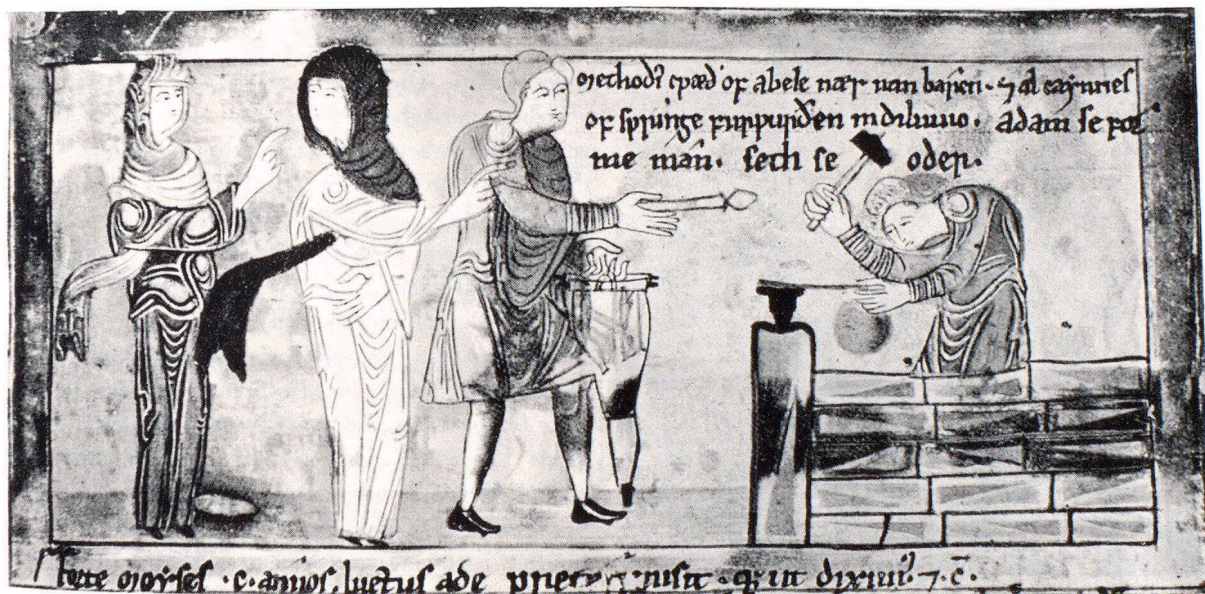 Methodꝰ cƿæð of abele nær nan barn · ⁊ al caymes
ofspringe furƿurðen in diluuio · adam se for
me man · seth se oðer ·
forte moyses · c · annos luctus ade ut diximꝰ ⁊ c̄ ·